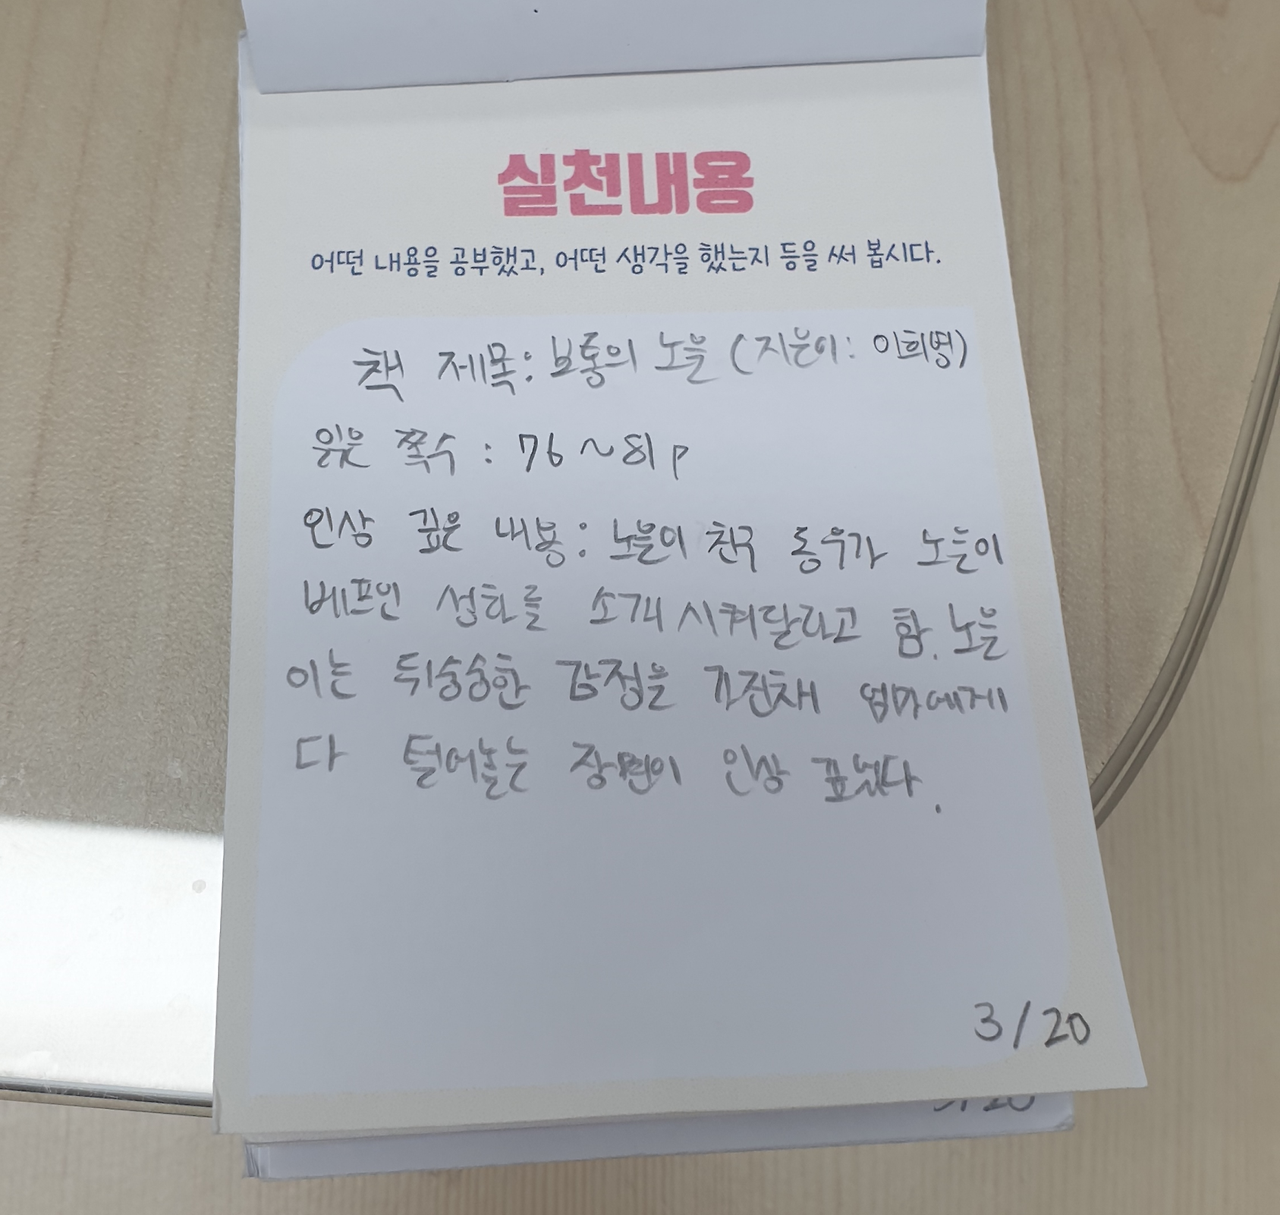 실천내용
어떤 내용을 공부했고, 어떤 생각을 했는지 등을 써 봅시다.
책 제목: 보통의 노을 (지은이: 이희영)
읽은 쪽수 : 76~81p
인상 깊은 내용: 노을이 친구 동우가 노을이
베프인 성하를 소개시켜달라고 함. 노을
이는 뒤숭숭한 감정을 가진채 엄마에게
다 털어놓는 장면이 인상 깊었다.
3/20